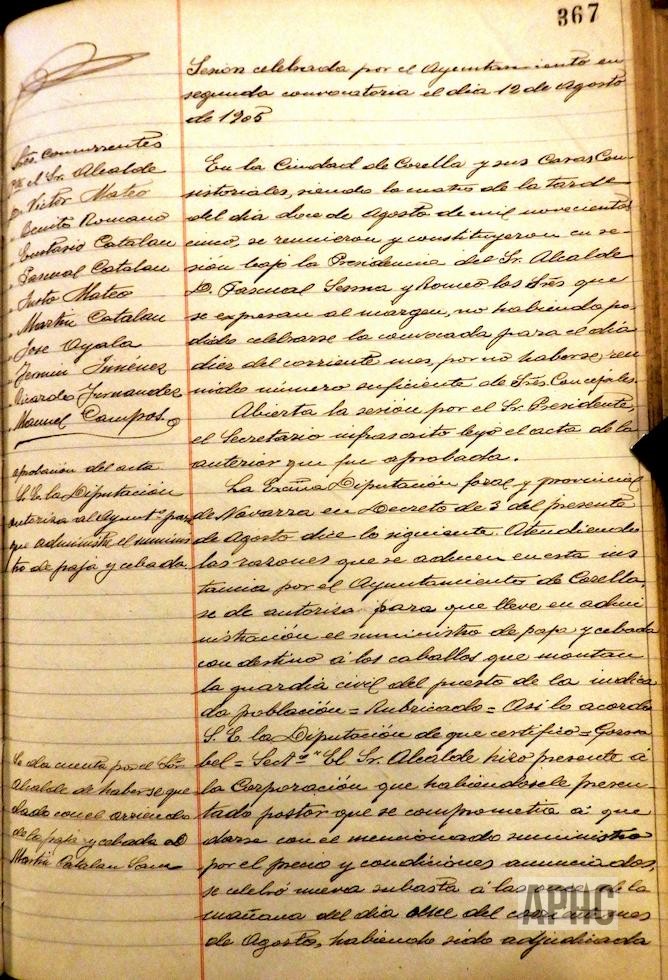 367
Sesion celebrada por el Ayuntamiento en
segunda convocatoria el dia 12 de Agosto
de 1905
Sres. concurrentes
el Sr. Alcalde
D. Victor Mateo
" Benito Romano
" Eustasio Catalan
" Pascual Catalan
" Justo Mateo
" Martin Catalan
" Jose Ayala
" Fermin Jiménez
" Ricardo Fernandez
" Manuel Campos.
En la Ciudad de Corella y sus Casas Con
sistoriales, siendo las cuatro de la tarde
del dia doce de Agosto de mil novecientos
cinco, se reunieron y constituyeron en se-
sión bajo la Presidencia del Sr. Alcalde
D. Pascual Sesma y Romeo los Sres que
se expresan al margen, no habiendo po-
dido celebrarse la convocada para el dia
diez del corriente mes, por no haberse reu
nido número suficiente de Sres. Concejales.
Abierta la sesión por el Sr. Presidente,
el Secretario infrascrito leyó el acta de la
anterior que fue aprobada.
aprobación del acta
S. E. la Diputación
autoriza al Aymtº. para
que administre el suminis
tro de paja y cebada.
La Excma Diputación foral y provincial
de Navarra en Decreto de 3 del presente
de Agosto dice lo siguiente. Atendiendo
las razones que se aducen en esta ins
tancia por el Ayuntamiento de Corella,
se de autoriza para que lleve en admi
nistración el suministro de paja y cebada
con destino á los caballos que montan
la guardia civil del puesto de la indica
da población = Rubricado = Asi lo acordó
S. E. la Diputación de que certifico =
bel = Sectº. " El Sr. Alcalde hizo presente á
la Corporación que habiendosele presen-
tado postor que se comprometia á que
darse con el mencionado suministro
por el precio y condiciones anunciados,
se celebró nueva subasta á las once de la
mañana del dia once del corriente mes
de Agosto, habiendo sido adjudicada
Se da cuenta por el Sor.
Alcalde de haberse que
dado con el arriendo
de la paja y cebada D
Martin Catalan Sanz
APHC